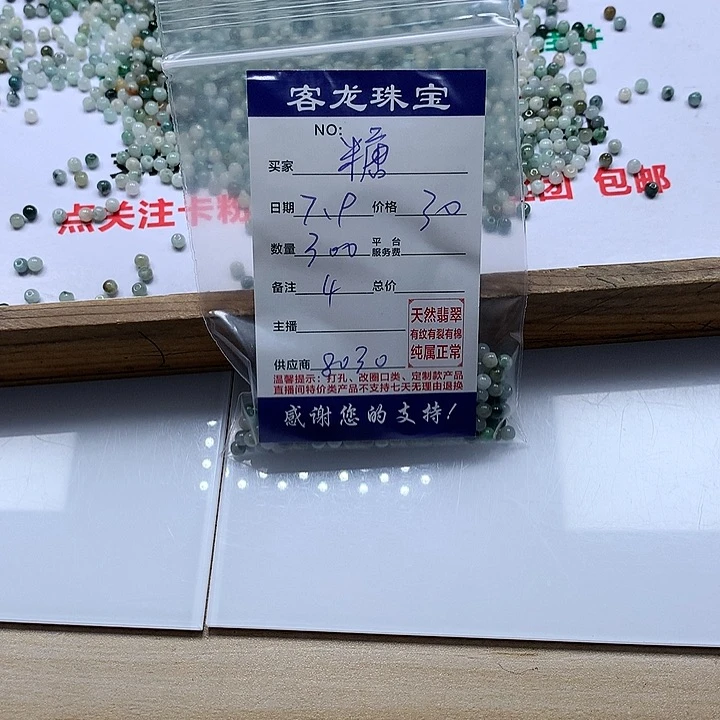 客龙珠宝
NO:
买家 糖
日期 7.9 价格 30
数量 300 平台服务费
备注 4 总价
主播
天然翡翠
有纹有裂有棉
纯属正常
供应商 8030
温馨提示：打孔、改圈口类、定制款产品
直播间特价类产品不支持七天无理由退换
感谢您的支持！
点关注卡粉
团 包邮